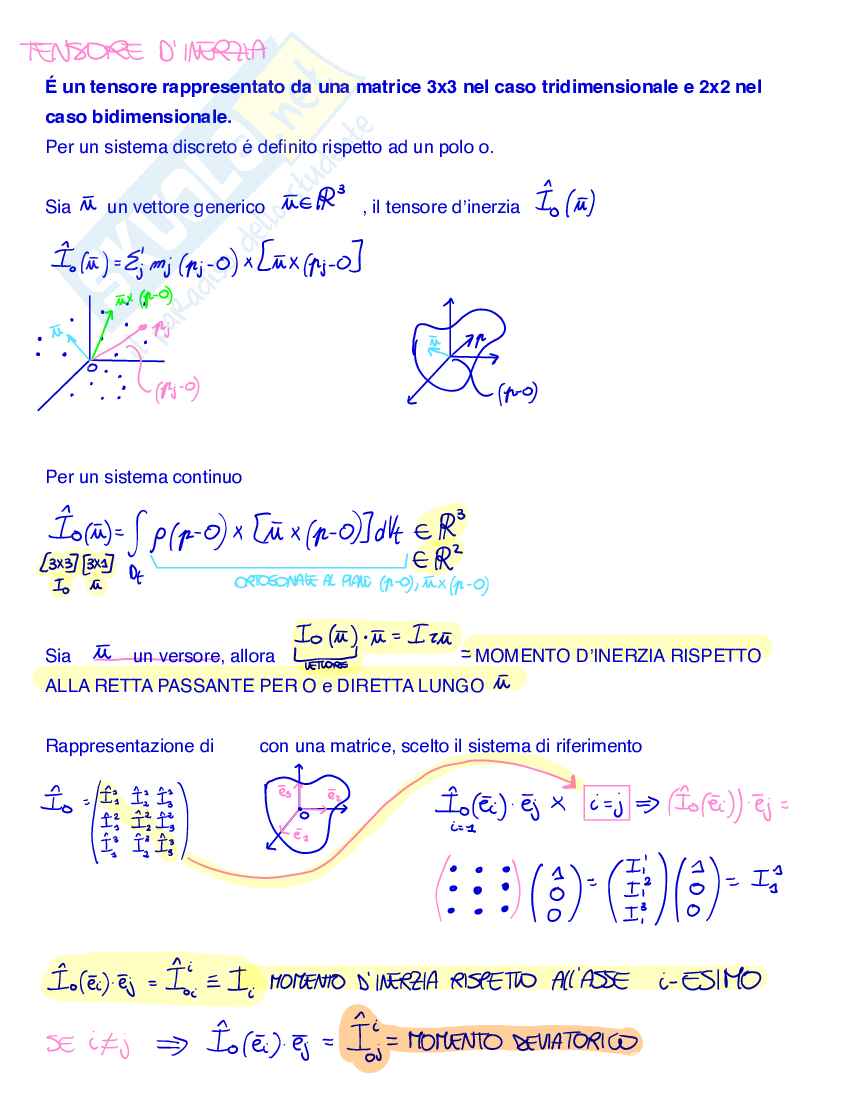 TENSORE D'INERZIA
É un tensore rappresentato da una matrice 3x3 nel caso tridimensionale e 2x2 nel
caso bidimensionale.
Per un sistema discreto é definito rispetto ad un polo o.
Sia ū un vettore generico ū∈ℝ³ , il tensore d'inerzia Î₀(ū)
Î₀(ū) = Σⱼ mⱼ (pⱼ-O) × [ū × (pⱼ-O]
ū×(p-O)
ū
pⱼ
O
(pⱼ-O)
ū
p
(p-O)
Per un sistema continuo
Î₀(ū) = ∫ ρ(p-O) × [ū × (p-O)] dVt ∈ ℝ³
[3x3] [3x1] Dt ∈ ℝ²
I₀ ū ORTOGONALE AL PIANO (p-O), ū×(p-O)
Sia ū un versore, allora I₀(ū)·ū = Izū = MOMENTO D'INERZIA RISPETTO
VETTORE
ALLA RETTA PASSANTE PER O e DIRETTA LUNGO ū
Rappresentazione di con una matrice, scelto il sistema di riferimento
Î₀ = (Î¹₁ Î¹₂ Î¹₃
Î²₁ Î²₂ Î²₃
Î³₁ Î³₂ Î³₃)
ē₃
ē₂
O
ē₁
Î₀(ēi)·ēj × i=j ⇒ (Î₀(ēi))·ēj =
i=1
(· · ·) (1) = (I₁¹) (1) = I₁¹
(· · ·) (0) (I₁²) (0)
(· · ·) (0) (I₁³) (0)
Î₀(ēi)·ēj = Î₀ᵢⁱ ≡ Ii MOMENTO D'INERZIA RISPETTO ALL'ASSE i-ESIMO
SE i≠j ⇒ Î₀(ēi)·ēj = Î₀ⱼⁱ = MOMENTO DEVIATORICO
SKUOLA.net